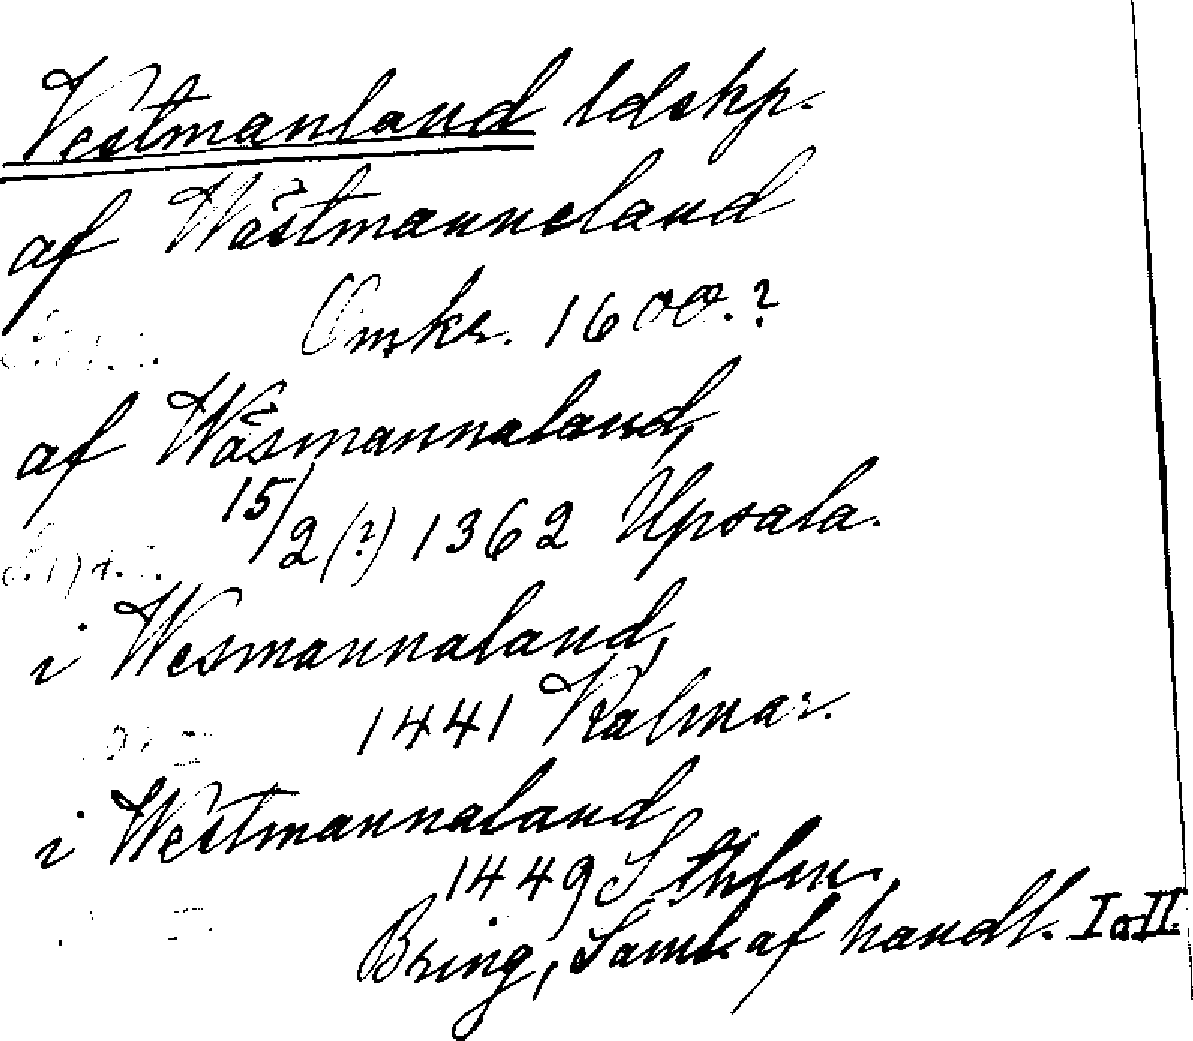 Vestmanland ldskp.
af Wästmanneland
Omkr. 1600.?
af Wäsmannaland,
15/2 (?) 1362 Upsala.
i Wesmannaland,
1441 Kalmar.
i Westmannaland,
1449 Sthlm.
Bring, Saml. af handl. I o. II.